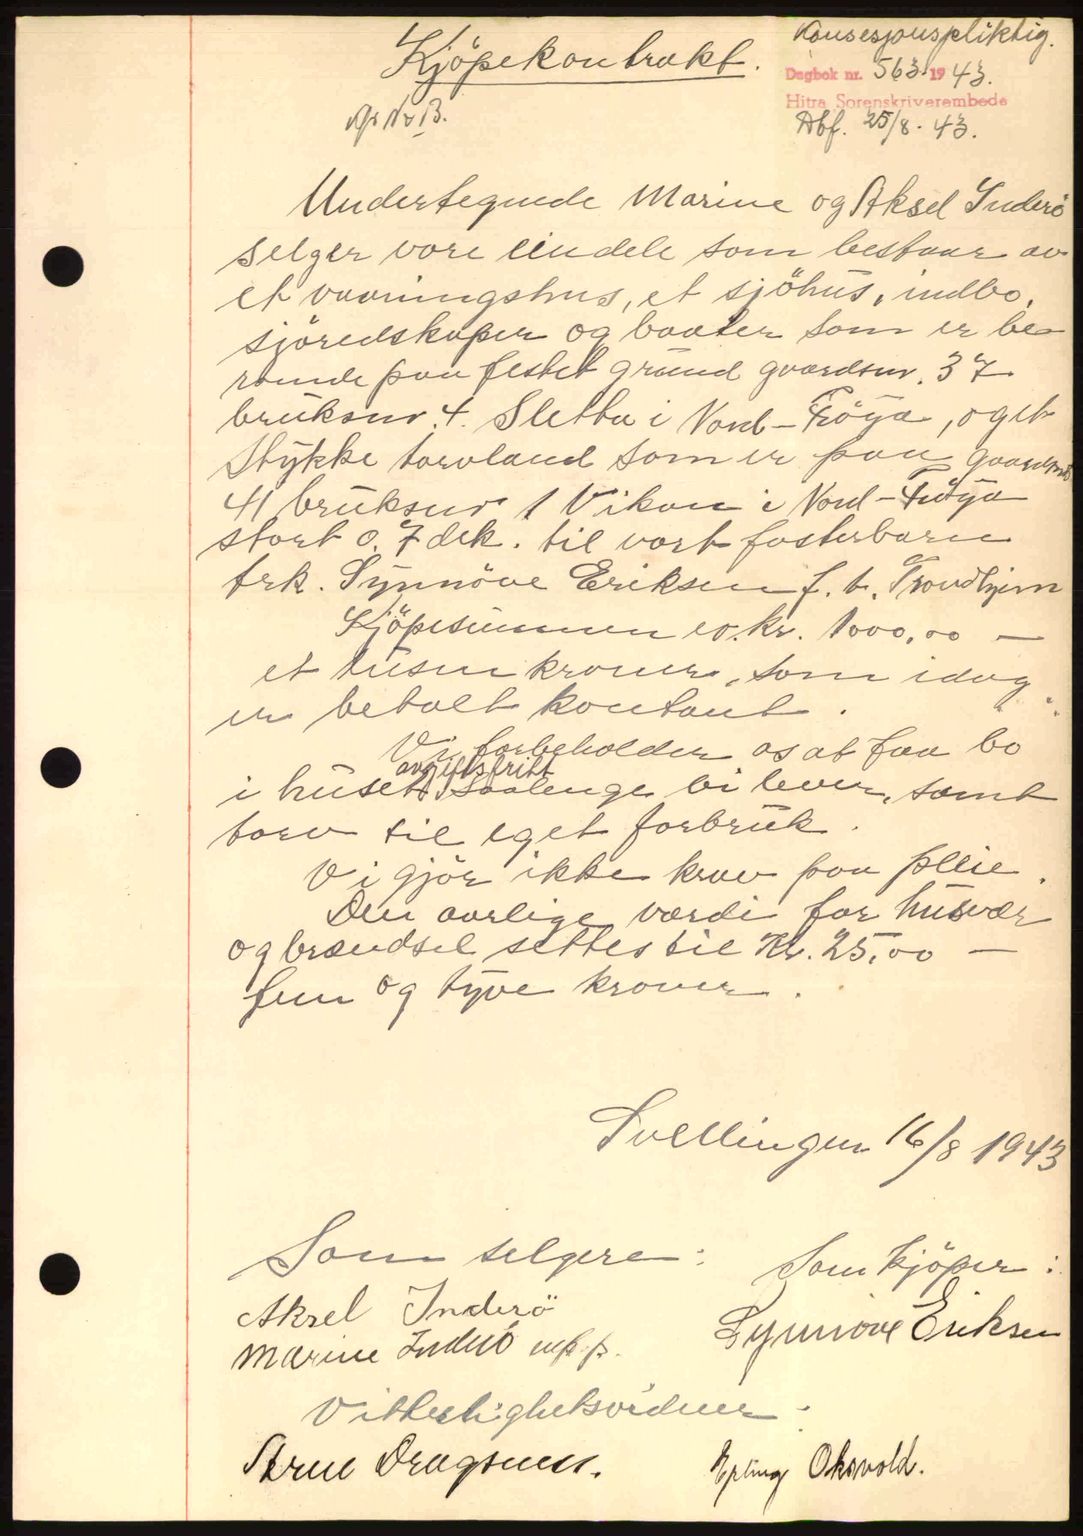 Kjöpekontrakt.
Konsesjonspliktig.
Dagbok nr. 563. 1943.
Hitra Sorenskriverembede
Avf. 25/8. 43.
Undertegnede Marine og Aksel Inderö
selger vore eiendele som bestaar av
et vaaningshus, et sjöhus, indbo,
sjöredskaper og baater som er be-
roende paa festet grund gaardsnr. 37
bruksnr. 4. Sletta i Nord-Fröya, og et
stykke torvland som er paa gaardsnr
41 bruksnr 1 Vikan i Nord-Fröya
stort 0.7 dek. til vort fosterbarn
frk. Synnöve Eriksen f. t. Trondhjem
Kjöpesummen er kr. 1000,00 —
et tusen kroner, som idag
er betalt kontant.
Vi forbeholder os at faa bo
avgiftsfritt
i huset saalenge vi lever, samt
torv til eget forbruk.
Vi gjör ikke krav paa pleie.
Den aarlige værdi for husvær
og brændsel settes til Kr. 25,00 —
fem og tyve kroner.
Svellingen 16/8 1943
Som selgere:
Som kjöper:
Aksel Inderö
Synnöve Eriksen
Marine Inderö m.p.p.
Vitterlighetsvidner:
Arne Dragsnes.
Erling Oksvold.